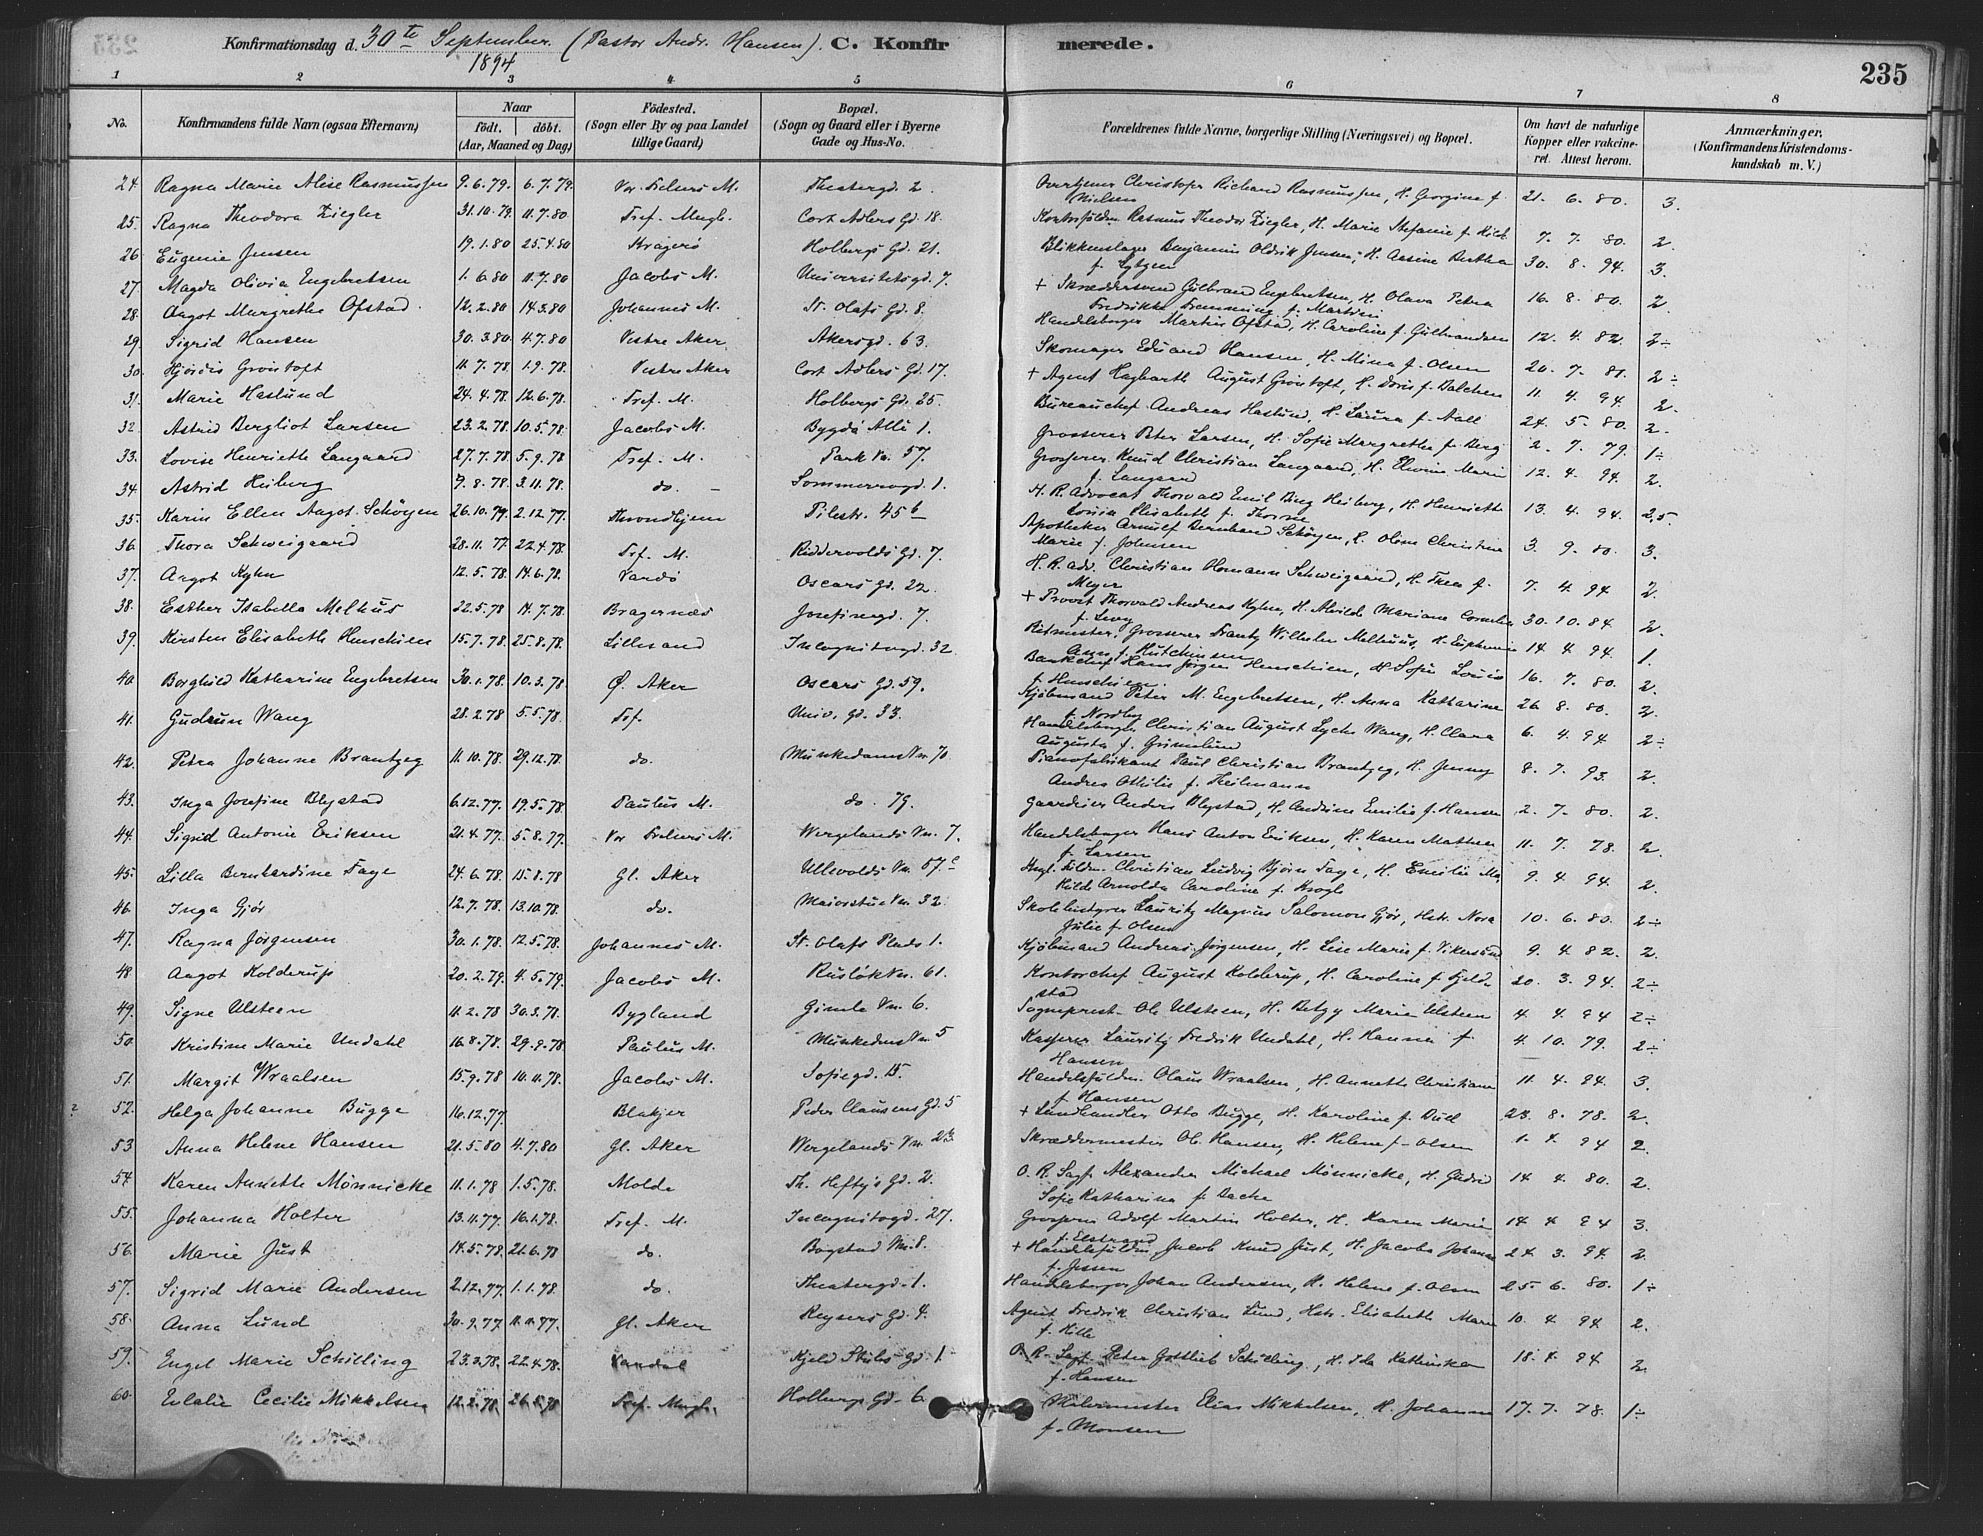 Konfirmationsdag d. 30te September. (Pastor Andr. Hansen). C. Konfir merede.
1894
235
1 2 3 4 5 6 7 8
No. Konfirmandens fulde Navn (ogsaa Efternavn) Naar født. døbt. (Aar, Maaned og Dag) Födested. (Sogn eller By og paa Landet tillige Gaard) Bopæl. (Sogn og Gaard eller i Byerne Gade og Hus-No. Forældrenes fulde Navne, borgerlige Stilling (Næringsvei) og Bopæl. Om havt de naturlige Kopper eller vakcineret. Attest herom. Anmærkninger. (Konfirmandens Kristendomskundskab m. V.)
24. Ragna Marie Alise Rasmussen 9.6.79. 6.7.79. Vor Frelsers M. Theatergd. 2. Christofer Richard Rasmussen, H. Georgine f. Nielsen 21. 6. 80. 3.
25. Ragna Theodora Ziegler 31.10.79. 11.7.80 Tref. Mngh. Cort Adlers Gd. 18. Rasmus Theodor Ziegler, H. Marie Stefanie f. 7. 7. 80. 2.
26. Eugenie Jensen 19.1.80 25.4.80 Kragerø Holbergs Gd. 21. Blikkenslager Benjamin Oldrik Jensen, H. Bertha f. 30. 8. 94. 3.
27. Magda Olivia Engebretsen 1.6.80 11.7.80 Jacobs M. Universitetsgd. 7. + Skræddersvend Gulbrand Engebretsen, H. Olava Petra Fredrikke f. Martini 16. 8. 80. 2.
28. Aagot Margrethe Ofstad 12.2.80 14.3.80 Johannes M. St. Olafs Gd. 8. Handelsborger Martin Ofstad, H. Caroline f. Gulbrandsen 12. 4. 82. 2÷
29. Sigrid Hansen 30.3.80 4.7.80 Vestre Aker. Akersgd. 63. Skomager Eduard Hansen, H. Mina f. Olsen 20. 7. 81. 2÷
30. Hjørdis Grøistoft 11.7.78 1.9.78. Vestre Aker Cort Adlers Gd. 17. + Agent Hagbarth August Grøistoft, H. Doris f. Dalchen 11. 4. 94. 2.
31. Marie Haslund 24.4.78 12.6.78. Tref. M. Holbergs Gd. 25. Bureauchef Andreas Haslund, H. Laura f. Aall 24. 5. 80. 2.
32. Astrid Bergliot Larsen 23.2.78. 10.5.78. Jacobs M. Bygdø Allé 1. Grosserer Peter Larsen, H. Sofie Margrethe f. Berg 2. 7. 79. 1÷
33. Lovise Henriette Langaard 27.7.78 5.9.78 Tref. M. Park Vn. 57. Grosserer Knud Christian Langaard, H. Elvine Marie f. Langaard 12. 4. 94. 2.
34. Astrid Heiberg 9.8.78. 3.11.78. do. Sommerrogd. 1. H. R. Advocat Thorvald Emil Bing Heiberg, H. Henriette Lovise Elisabeth f. Thorne 13. 4. 94. 2,5.
35. Karin Ellen Aagot Schøyen 26.10.79. 2.12.77. Throndhjem Pilestr. 45 b Apotheker Arnulf Bernhard Schøyen, H. Olena Christine Marie f. Johnsen 3. 9. 80. 3.
36. Thora Schweigaard 28.11.77 22.4.78. Trf. M. Riddervolds Gd. 7. H. R. adv. Christian Homann Schweigaard, H. Thea f. Meyer 7. 4. 94 2.
37. Aagot Kyhn 12.5.78. 14.6.78. Vardø Oscars Gd. 22. + Provst Thorvald Andreas Kyhn, H. Alvilde Mariane Cornelia f. Levy 30. 10. 84. 2.
38. Esther Isabella Melhus 22.5.78 14.7.78. Bragernæs Josefinegd. 7. Ritmester, Grosserer Frantz Wilhelm Melhuus, H. Euphemia Ann f. Hutchinson 14. 4. 94. 1.
39. Kirsten Elisabeth Henschien 15.7.78 25.8.78. Lillesand Incognitogd. 32 Bankchef Hans Jørgen Henschien, H. Sofie Lovise f. Henschien 16. 7. 80. 2.
40. Borghild Katharine Engebretsen 30.1.78 10.3.78. Ø. Aker Oscars Gd. 59. Kjøbmand Peter M. Engebretsen, H. Anna Katharine f. Nordby 26. 8. 80. 2.
41. Gudrun Wang 28.2.78 5.5.78. Trf. Univ. Gd. 33. Handelsborger Christian August Lyche Wang, H. Clara Augusta f. Grimelund 6. 4. 94. 2÷
42. Petra Johanne Brantzeg 11.10.78. 29.12.78. do. Munkedams Vn. 70 Pianofabrikant Paul Christian Brantzeg, H. Jenny Andrea Ottilie f. Theilmann 8. 7. 93. 2.
43. Inga Josefine Blystad 6.12.77. 19.5.78. Paulus M. do. 79. Gaardeier Anders Blystad, H. Andrine Emilie f. Hansen 2. 7. 80. 2.
44. Sigrid Antonie Eriksen 21.4.77. 5.8.77. Vor Frelsers M. Wergelands Vn. 7. Handelsborger Hans Anton Eriksen, H. Karen Mathea f. Larsen 11. 7. 78. 2.
45. Lilla Bernhardine Faye 24.6.78. 15.8.78 Gl. Aker Ullevolds Vn. 57 c Christian Ludvig Bjørn Faye, H. Emilie Mathilde Arnolda Caroline f. Krogh 9. 4. 94. 2.
46. Inga Gjør 12.7.78. 13.10.78. do. Majorstue Vn. 32. Skolebestyrer Lauritz Magnus Salomon Gjør, Hstr. Nora Julie f. Olsen 10. 6. 80. 2÷
47. Ragna Jørgensen 30.1.78. 12.5.78. Johannes M. St. Olafs Plads 1. Kjøbmand Andreas Jørgensen, H. Lise Marie f. Vikersund 9. 4. 82. 2.
48. Aagot Kolderup 20.2.79. 4.5.79. Jacobs M. Rusløk Vn. 61. Kontorchef August Kolderup, H. Caroline f. Fjeldstad 20. 3. 94. 2÷
49. Signe Ulsteen 11.2.78 30.3.78. Bygland Gimle Vn. 6. Sogneprest Ole Ulsteen, H. Betzy Marie Ulsteen 4. 4. 94 2÷
50. Kristine Marie Undahl 16.8.78. 29.9.78 Paulus M. Munkedms Vn. 5 Kasserer Lauritz Fredrik Undahl, H. Hanna f. Hansen 4. 10. 79. 2÷
51. Margit Wraalsen 15.9.78 10.11.78. Jacobs M. Sofiegd. 15. Handelsfuldm. Olaus Wraalsen, H. Annette Christiane f. Hansen 11. 4. 94. 3.
52. Helga Johanne Bugge 16.12.77. Blakjer Peder Clausens Gd. 5 + Landhandler Otto Bugge, H. Karoline f. Dull 23. 8. 78. 2.
53 Anna Helene Hansen 21.5.80 4.7.80 Gl. Aker Wergelands Vn. 23. Skræddermester Ole Hansen, H. Helene f. Olsen 1. 4. 94 2.
54. Karen Annette Mønnicke 11.1.78 1.5.78. Molde Th. Heftys Gd. 2. O. R. Sagf. Alexander Michael Mønnicke, H. Sofie Katharina f. Dache 14 4. 80. 2.
55. Johanna Holter 13.11.77. 16.1.78. Tref. M. Incognitogd. 27. Grosserer Adolf Martin Holter, H. Karen Marie f. Elstrand 14 4 94 3.
56. Marie Just 14.5.78. 21.6.78 do. Bogstad Vn. 8. + Handelsfuldm. Jacob Knud Just, H. Jacoba Johanne f. Jessen 24. 3. 94. 2.
57. Sigrid Marie Andersen 2.12.77. 1.1.78. do. Theatergd. 1. Handelsborger Johan Andersen, H. Helene f. Olsen 25. 6. 80. 1÷
58. Anna Lund 30.9.77. 11.11.77. Gl. Aker Keysers Gd. 4. Agent Fredrik Christian Lund, Hstr. Elisabeth Marie f. Hille 10. 4. 94. 2.
59. Engel Marie Schilling 23.3.78. 22.4.78. Vandal Kjeld Stubs Gd. 1 O. R. Sagf. Peter Gottlieb Schilling, H. Ida Kathinka f. Hansen 18. 4. 94 2.
60. Evlalie Cecilie Mikkelsen 12.2.78. 26.5.78 Tref. Mngh. Holbergs Gd. 6 Elias Mikkelsen, H. Johanne f. Monsen 17. 7. 78. 1÷